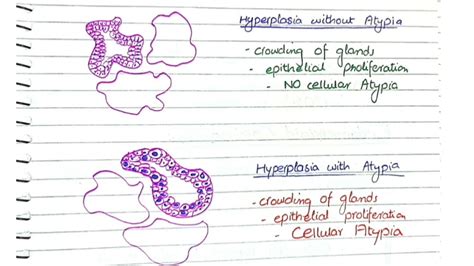 Hyperplasia without Atypia
- crowding of glands
- epithelial proliferation
- NO cellular Atypia
Hyperplasia with Atypia
- crowding of glands
- epithelial proliferation
- Cellular Atypia